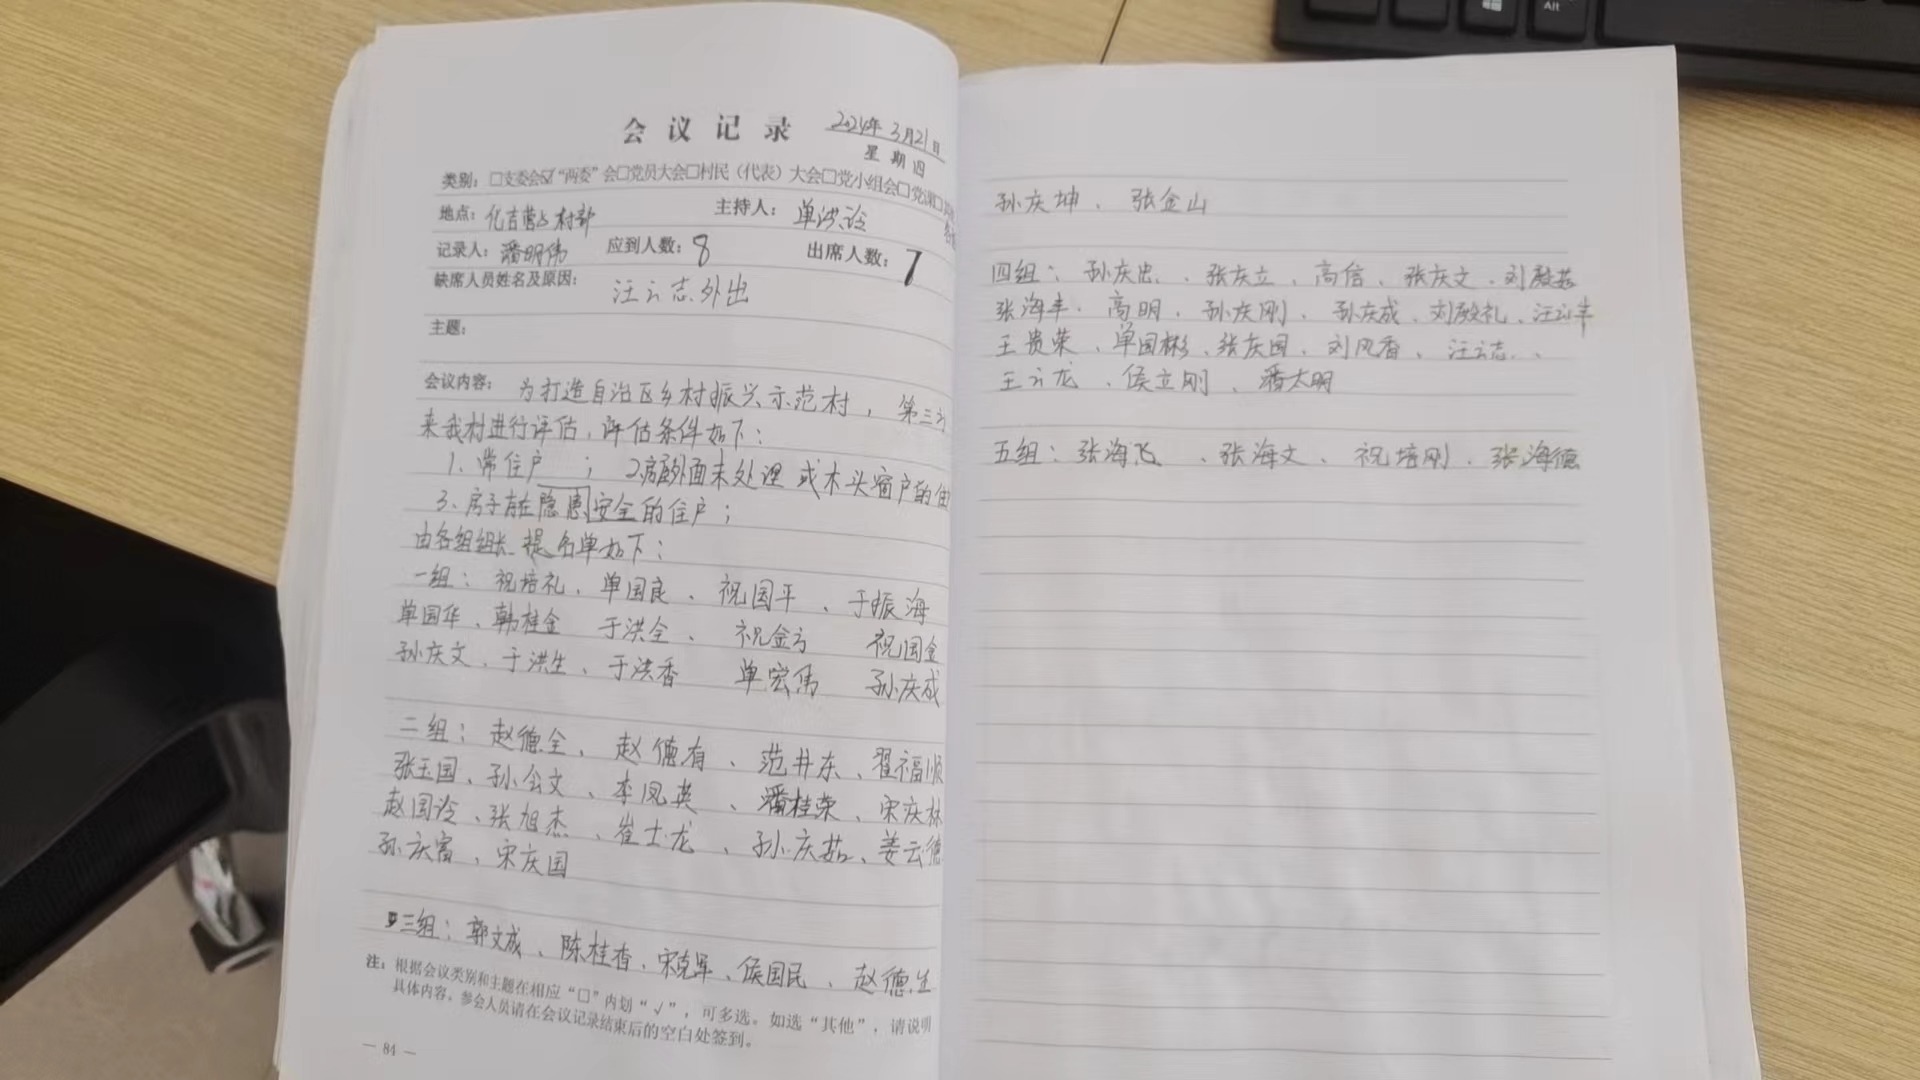 会议记录
2024年3月21日
星期四
类别：□支委会☑“两委”会□党员大会□村民（代表）大会□党小组会□党课□
地点：化吉营子村部 主持人：单洪
记录人：潘明伟 应到人数：8 出席人数：7
缺席人员姓名及原因：汪云志外出
主题：
会议内容：为打造自治区乡村振兴示范村，第三方
来我村进行评估，评估条件如下：
1、常住户 ； 2房屋外面未处理或木头窗户的住
3、房子存在隐患安全的住户；
由各组组长提名单如下：
一组：祝培礼、单国良、祝国平、于振海
单国华、韩桂金 于洪全、 祝金 祝国金
孙庆文、于洪生、于洪香 单宏伟 孙庆成
二组：赵德全、赵德有、范井东、翟福顺
张玉国、孙公文、李凤英、潘桂荣、宋庆林
赵国、张旭杰、崔士龙、孙庆茹、姜云德
孙庆富、宋庆国
三组：郭文成、陈桂香、宋克军、侯国民、赵德生
注：根据会议类别和主题在相应“□”内划“√”，可多选。如选“其他”，请说明
具体内容。参会人员请在会议记录结束后的空白处签到。
— 84 —
孙庆坤、张金山
四组：孙庆忠、张庆立、高信、张庆文、刘殿茹
张海丰、高明、孙庆刚、孙庆成、刘殿礼、汪云丰
王贵荣、单国彬、张庆国、刘凤香、汪云志、
王云龙、侯立刚、潘太明
五组：张海飞、张海文、祝培刚、张海德
Alt